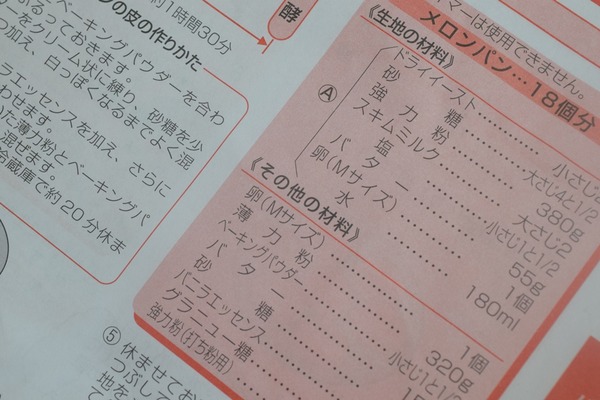 約1時間30分
の皮の作りかた
ベーキングパウダーを合わ
るっておきます。
をクリーム状に練り、砂糖を少
つ加え、白っぽくなるまでよく混
ラエッセンスを加え、さらに
わせます。
た薄力粉とベーキングパ
混ぜます。
冷蔵庫で約20分休ま
酵
マーは使用できません。
メロンパン…18個分
《生地の材料》
Ⓐ
ドライイースト………小さじ2
砂糖………大さじ4と1/2
強力粉………380g
スキムミルク………大さじ2
塩………小さじ1と1/2
バター………55g
卵(Mサイズ)………1個
水………180ml
《その他の材料》
卵(Mサイズ)………1個
薄力粉………320g
ベーキングパウダー………小さじ1と1/
バター
砂糖
バニラエッセンス
グラニュー糖
強力粉(打ち粉用)
⑤
休ませてお
つぶして
地を